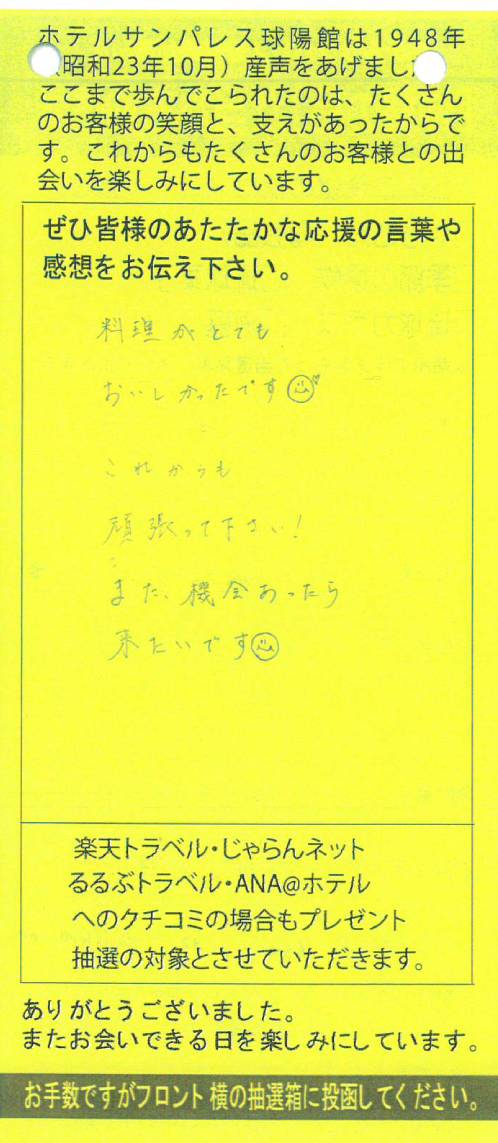 ホテルサンパレス球陽館は1948年
（昭和23年10月）産声をあげました
ここまで歩んでこられたのは、たくさん
のお客様の笑顔と、支えがあったからで
す。これからもたくさんのお客様との出
会いを楽しみにしています。
ぜひ皆様のあたたかな応援の言葉や
感想をお伝え下さい。
料理がとても
おいしかったです
これからも
頑張って下さい!
また、機会あったら
来たいです
楽天トラベル・じゃらんネット
るるぶトラベル・ANA@ホテル
へのクチコミの場合もプレゼント
抽選の対象とさせていただきます。
ありがとうございました。
またお会いできる日を楽しみにしています。
お手数ですがフロント横の抽選箱に投函してください。